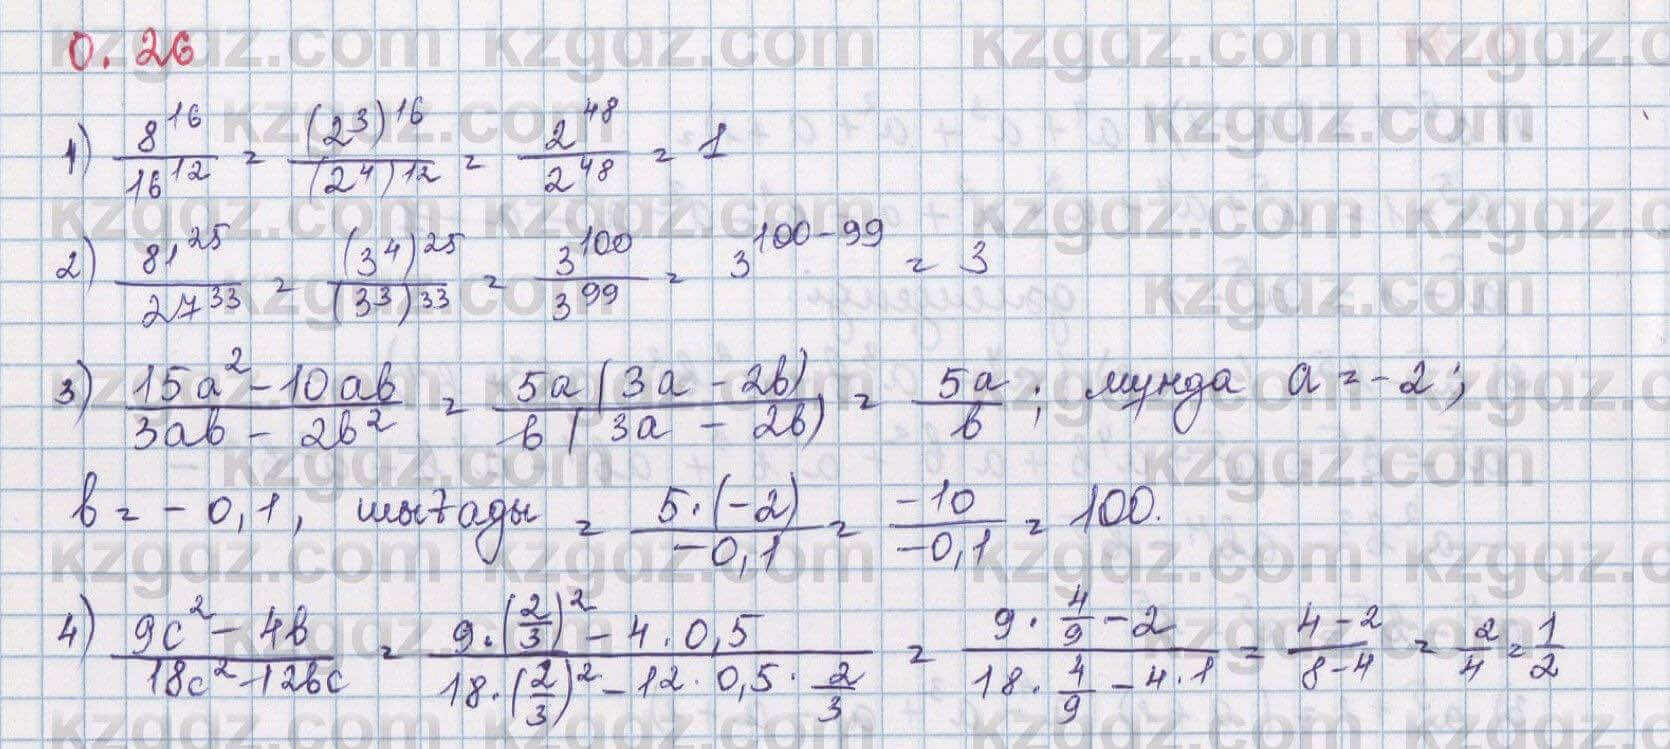 0.26
1) 8^16/16^12 = (2^3)^16/(2^4)^12 = 2^48/2^48 = 1
2) 81^25/27^33 = (3^4)^25/(3^3)^33 = 3^100/3^99 = 3^100-99 = 3
3) 15a^2-10ab/3ab-2b^2 = 5a(3a-2b)/b(3a-2b) = 5a/b; мұнда a=-2;
b=-0,1, шығады = 5·(-2)/-0,1 = -10/-0,1 = 100.
4) 9c^2-4b/18c^2-12bc = 9·(2/3)^2-4·0,5/18·(2/3)^2-12·0,5·2/3 = 9·4/9-2/18·4/9-4·1 = 4-2/8-4 = 2/4 = 1/2
kzgdz.com